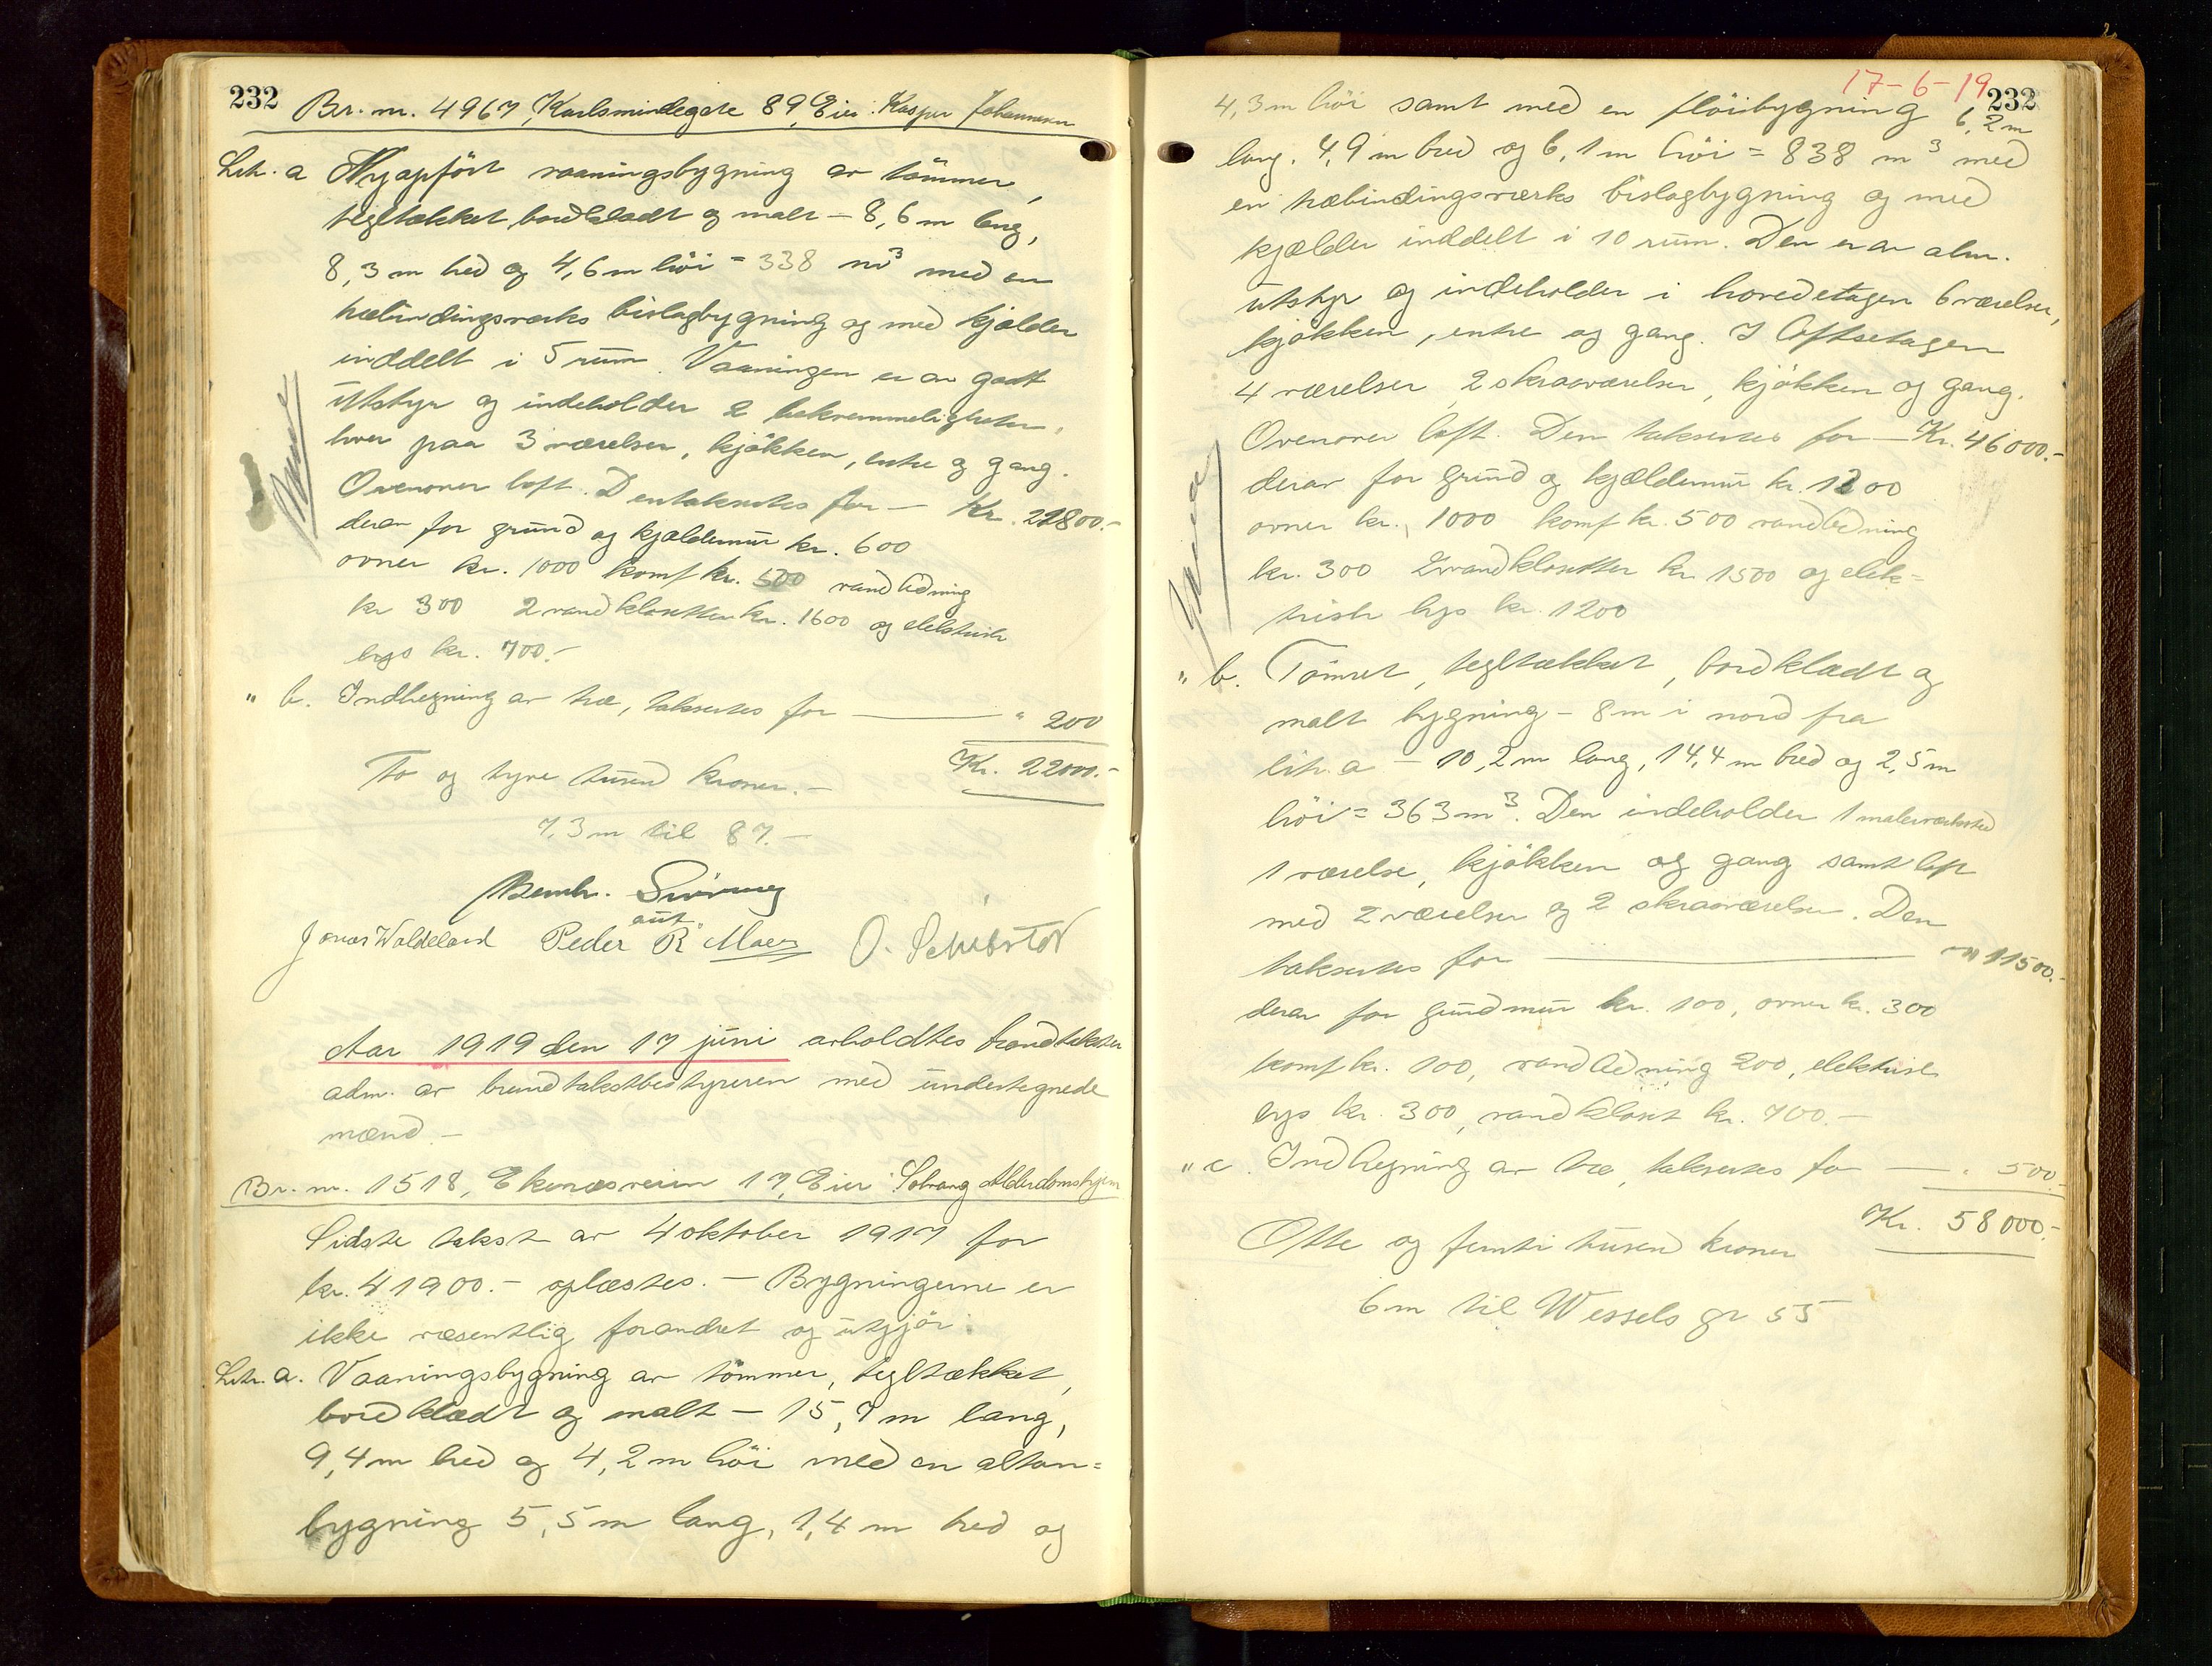 232
Br. nr. 4967, Karlsmindegate 89, Eier: Kasper Johannesen
Litr. a Nyopført vaaningsbygning av tømmer,
tegltækket, bordklædt og malt – 8,6 m lang,
8,3 m bred og 4,6 m høi = 338 m³ med en
træbindingsverks bislagbygning og med kjælder
inddelt i 5 rum. Vaaningen er av godt
utstyr og indeholder 2 bekvemmeligheter,
hver paa 3 værelser, kjøkken, entre og gang.
Ovenover loft. Den taksertes for — Kr. 21800.-
derav for grund og kjældermur kr. 600
ovner kr. 1000 komf kr. 500 vandledning
kr 300 2 vandklosetter kr. 1600 og elektrisk
lys kr. 700.-
" b. Indhegning av træ, taksertes for — " 200
To og tyve tusend kroner.- Kr. 22000.-
7,3 m til 87.-
Bernh.
Jonas Waldeland Peder R
aut.
O. Schibsted
Aar 1919 den 17 juni avholdtes brandtakster
adm. av brandtakstbestyreren med undertegnede
mænd.-
Br. nr. 1518, Ekenæsveien 17, Eier: Solvang Alderdomshjem
Sidste takst av 4 oktober 1917 for
kr. 41900.- oplæstes. – Bygningerne er
ikke væsentlig forandret og utgjør:
Litr. a. Vaaningsbygning av tømmer, tegltækket,
bordklædt og malt – 15,7 m lang,
9,4 m bred og 4,2 m høi med en altan=
bygning 5,5 m lang, 1,4 m bred og
17-6-19
232
4,3 m høi samt med en fløibygning 6,2 m
lang, 4,9 m bred og 6,1 m høi = 838 m³ med
en træbindingsverks bislagbygning og med
kjælder inddelt i 10 rum. Den er av alm.
utstyr og indeholder i hovedetagen 6 værelser,
kjøkken, entre og gang. I loftsetagen
4 værelser, 2 skraaværelser, kjøkken og gang.
Ovenover loft. Den taksertes for — Kr. 46000.-
derav for grund og kjældermur kr. 1200
ovner kr. 1000 komf kr. 500 vandledning
kr. 300 2 vandklosetter kr. 1500 og elek=
trisk lys kr. 1200
" b. Tømret, tegltækket, bordklædt og
malt bygning – 8 m i nord fra
litr. a – 10,2 m lang, 14,4 m bred og 2,5 m
høi = 363 m³. Den indeholder 1 malerverksted
1 værelse, kjøkken og gang samt loft
med 2 værelser og 2 skraaværelser. Den
taksertes for — " 11500.-
derav for grundmur kr. 100, ovner kr. 300
komf kr. 100, vandledning 200, elektrisk
lys kr. 300, vandkloset kr. 700.-
" c. Indhegning av træ, taksertes for — " 500.-
Kr. 58000.-
Otte og femti tusend kroner
6 m til Wessels gt 55